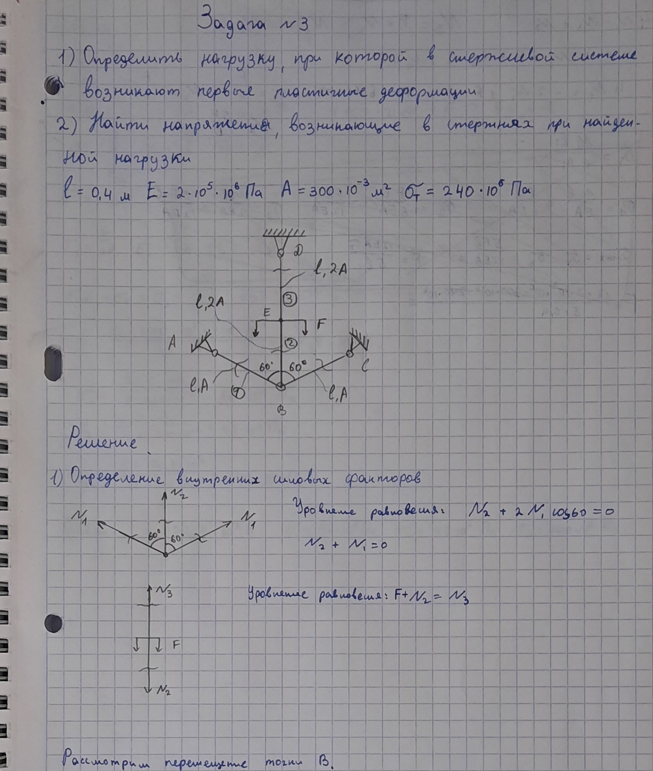 Задача №3
1) Определить нагрузку, при которой в стержневой системе
возникают первые пластичные деформации
2) Найти напряжения, возникающие в стержнях при найден-
ной нагрузки
l = 0,4 м E = 2·10⁵·10⁶ Па A = 300·10⁻³ м² σт = 240·10⁶ Па
D
l, 2A
③
l, 2A
E
F
A
②
C
60° 60°
l, A
①
l, A
B
Решение
1) Определение внутренних силовых факторов
N₂
N₁
N₁
60° 60°
Уровнение равновесия: N₂ + 2 N₁ cos60 = 0
N₂ + N₁ = 0
N₃
Уровнение равновесия: F + N₂ = N₃
F
N₂
Рассмотрим перемещение точки B.